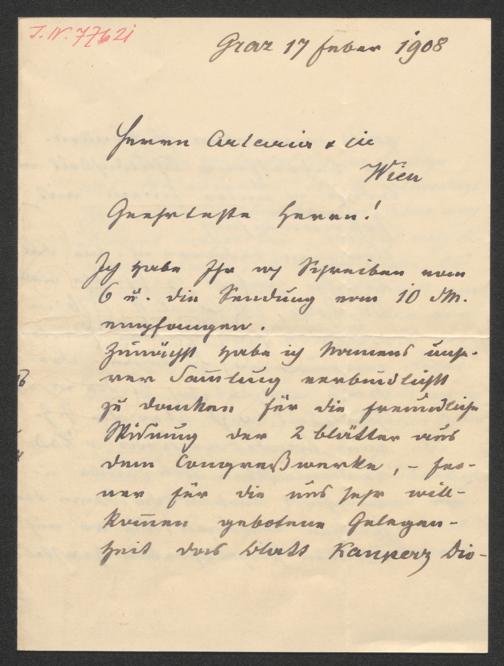 J.N. 77621
Graz 17 feber 1908
Herrn Artaria & Cie
Wien
Geehrteste Herrn!
Ich habe Ihr Schreiben vom
6 u. die Sendung vom 10 dM.
empfangen.
Zunächst habe ich Namens unse-
rer Samlung verbindlichst
zu danken für die freundliche
Widmung der 2 blätter aus
dem Congreßwerke, – fer-
ner für die uns sehr will-
komen gebotene Gelegen-
heit das blatt